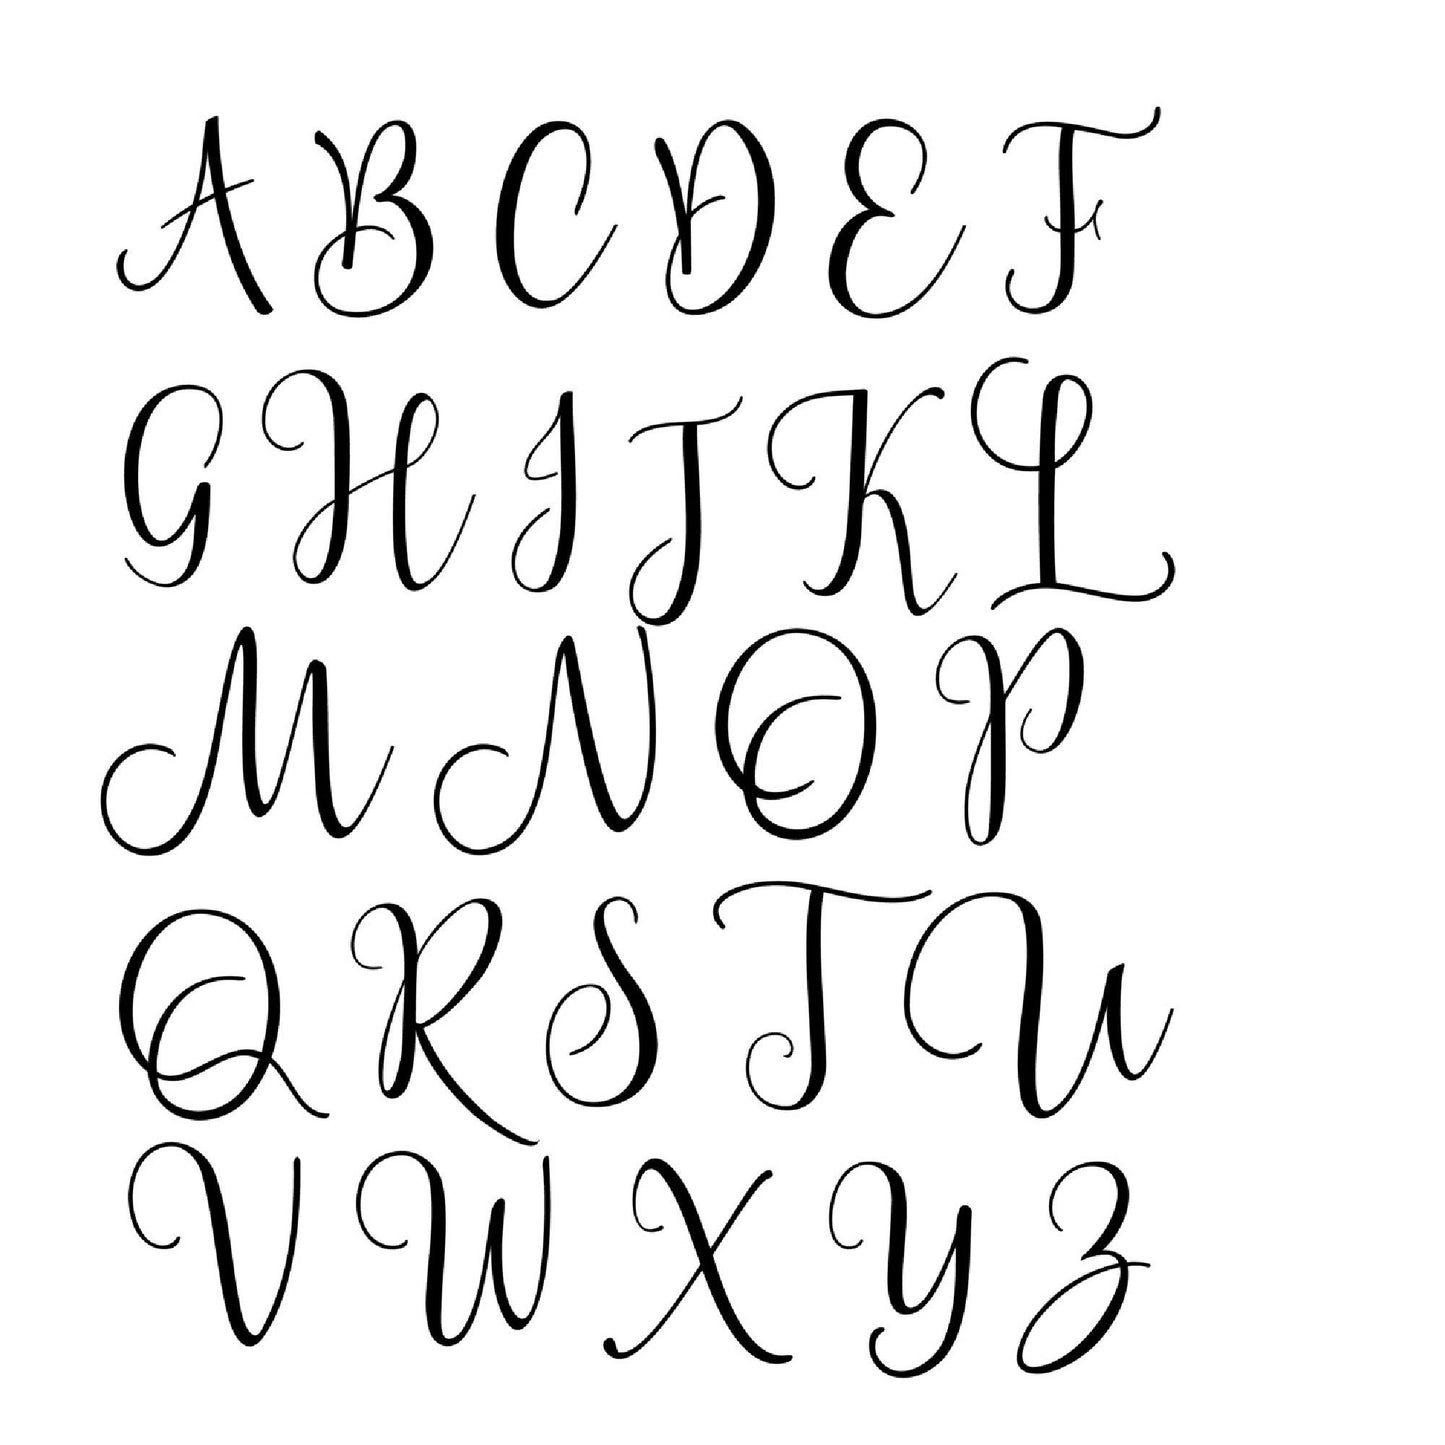 A B C D E F
G H I J K L
M N O P
Q R S T U
V W X Y Z